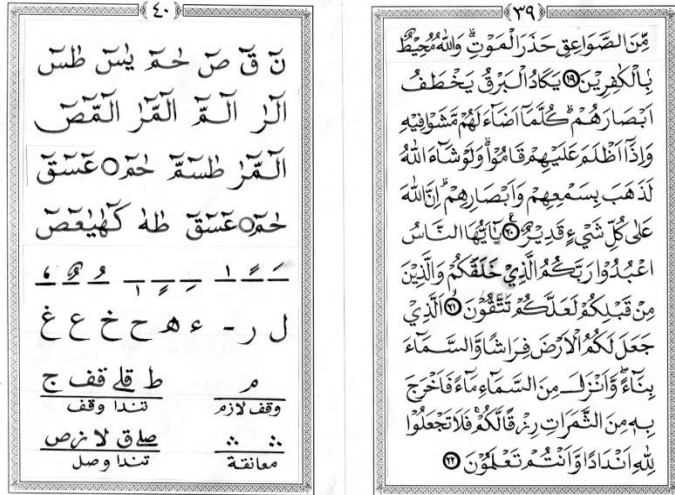 ٣٩
مِّنَ الصَّوَاعِقِ حَذَرَ الْمَوْتِۗ وَاللهُ مُحِيْطٌ
بِالْكٰفِرِيْنَ ۝١٩ يَكَادُ الْبَرْقُ يَخْطَفُ
اَبْصَارَهُمْۗ كُلَّمَآ اَضَاۤءَ لَهُمْ مَّشَوْا فِيْهِ
وَاِذَآ اَظْلَمَ عَلَيْهِمْ قَامُوْاۗ وَلَوْ شَاۤءَ اللهُ
لَذَهَبَ بِسَمْعِهِمْ وَاَبْصَارِهِمْۗ اِنَّ اللهَ
عَلٰى كُلِّ شَيْءٍ قَدِيْرٌ ۝٢٠ يٰٓاَيُّهَا النَّاسُ
اعْبُدُوْا رَبَّكُمُ الَّذِيْ خَلَقَكُمْ وَالَّذِيْنَ
مِنْ قَبْلِكُمْ لَعَلَّكُمْ تَتَّقُوْنَ ۝٢١ الَّذِيْ
جَعَلَ لَكُمُ الْاَرْضَ فِرَاشًا وَّالسَّمَاۤءَ
بِنَاۤءًۖ وَّاَنْزَلَ مِنَ السَّمَاۤءِ مَاۤءً فَاَخْرَجَ
بِهٖ مِنَ الثَّمَرَاتِ رِزْقًا لَّكُمْۚ فَلَا تَجْعَلُوْا
لِلّٰهِ اَنْدَادًا وَّاَنْتُمْ تَعْلَمُوْنَ ۝٢٢
٤٠
نۤ قۤ صۤ حٰمۤ يٰسۤ طٰسۤ
الۤرٰ الۤـمّۤ الۤمّۤرٰ الۤمّۤصۤ
الۤمّۤرٰ طٰسۤمّۤ حٰمۤ ۝ عۤسۤقۤ
حٰمۤ ۝ عۤسۤقۤ طٰهٰ كۤهٰيٰعۤصۤ
ل ر - ء ه ح خ ع غ
م ط قلے قف ج
وقف لازم تندا وقف
∴ ∴ صلے ق لا ز ص
معانقة تندا وصل